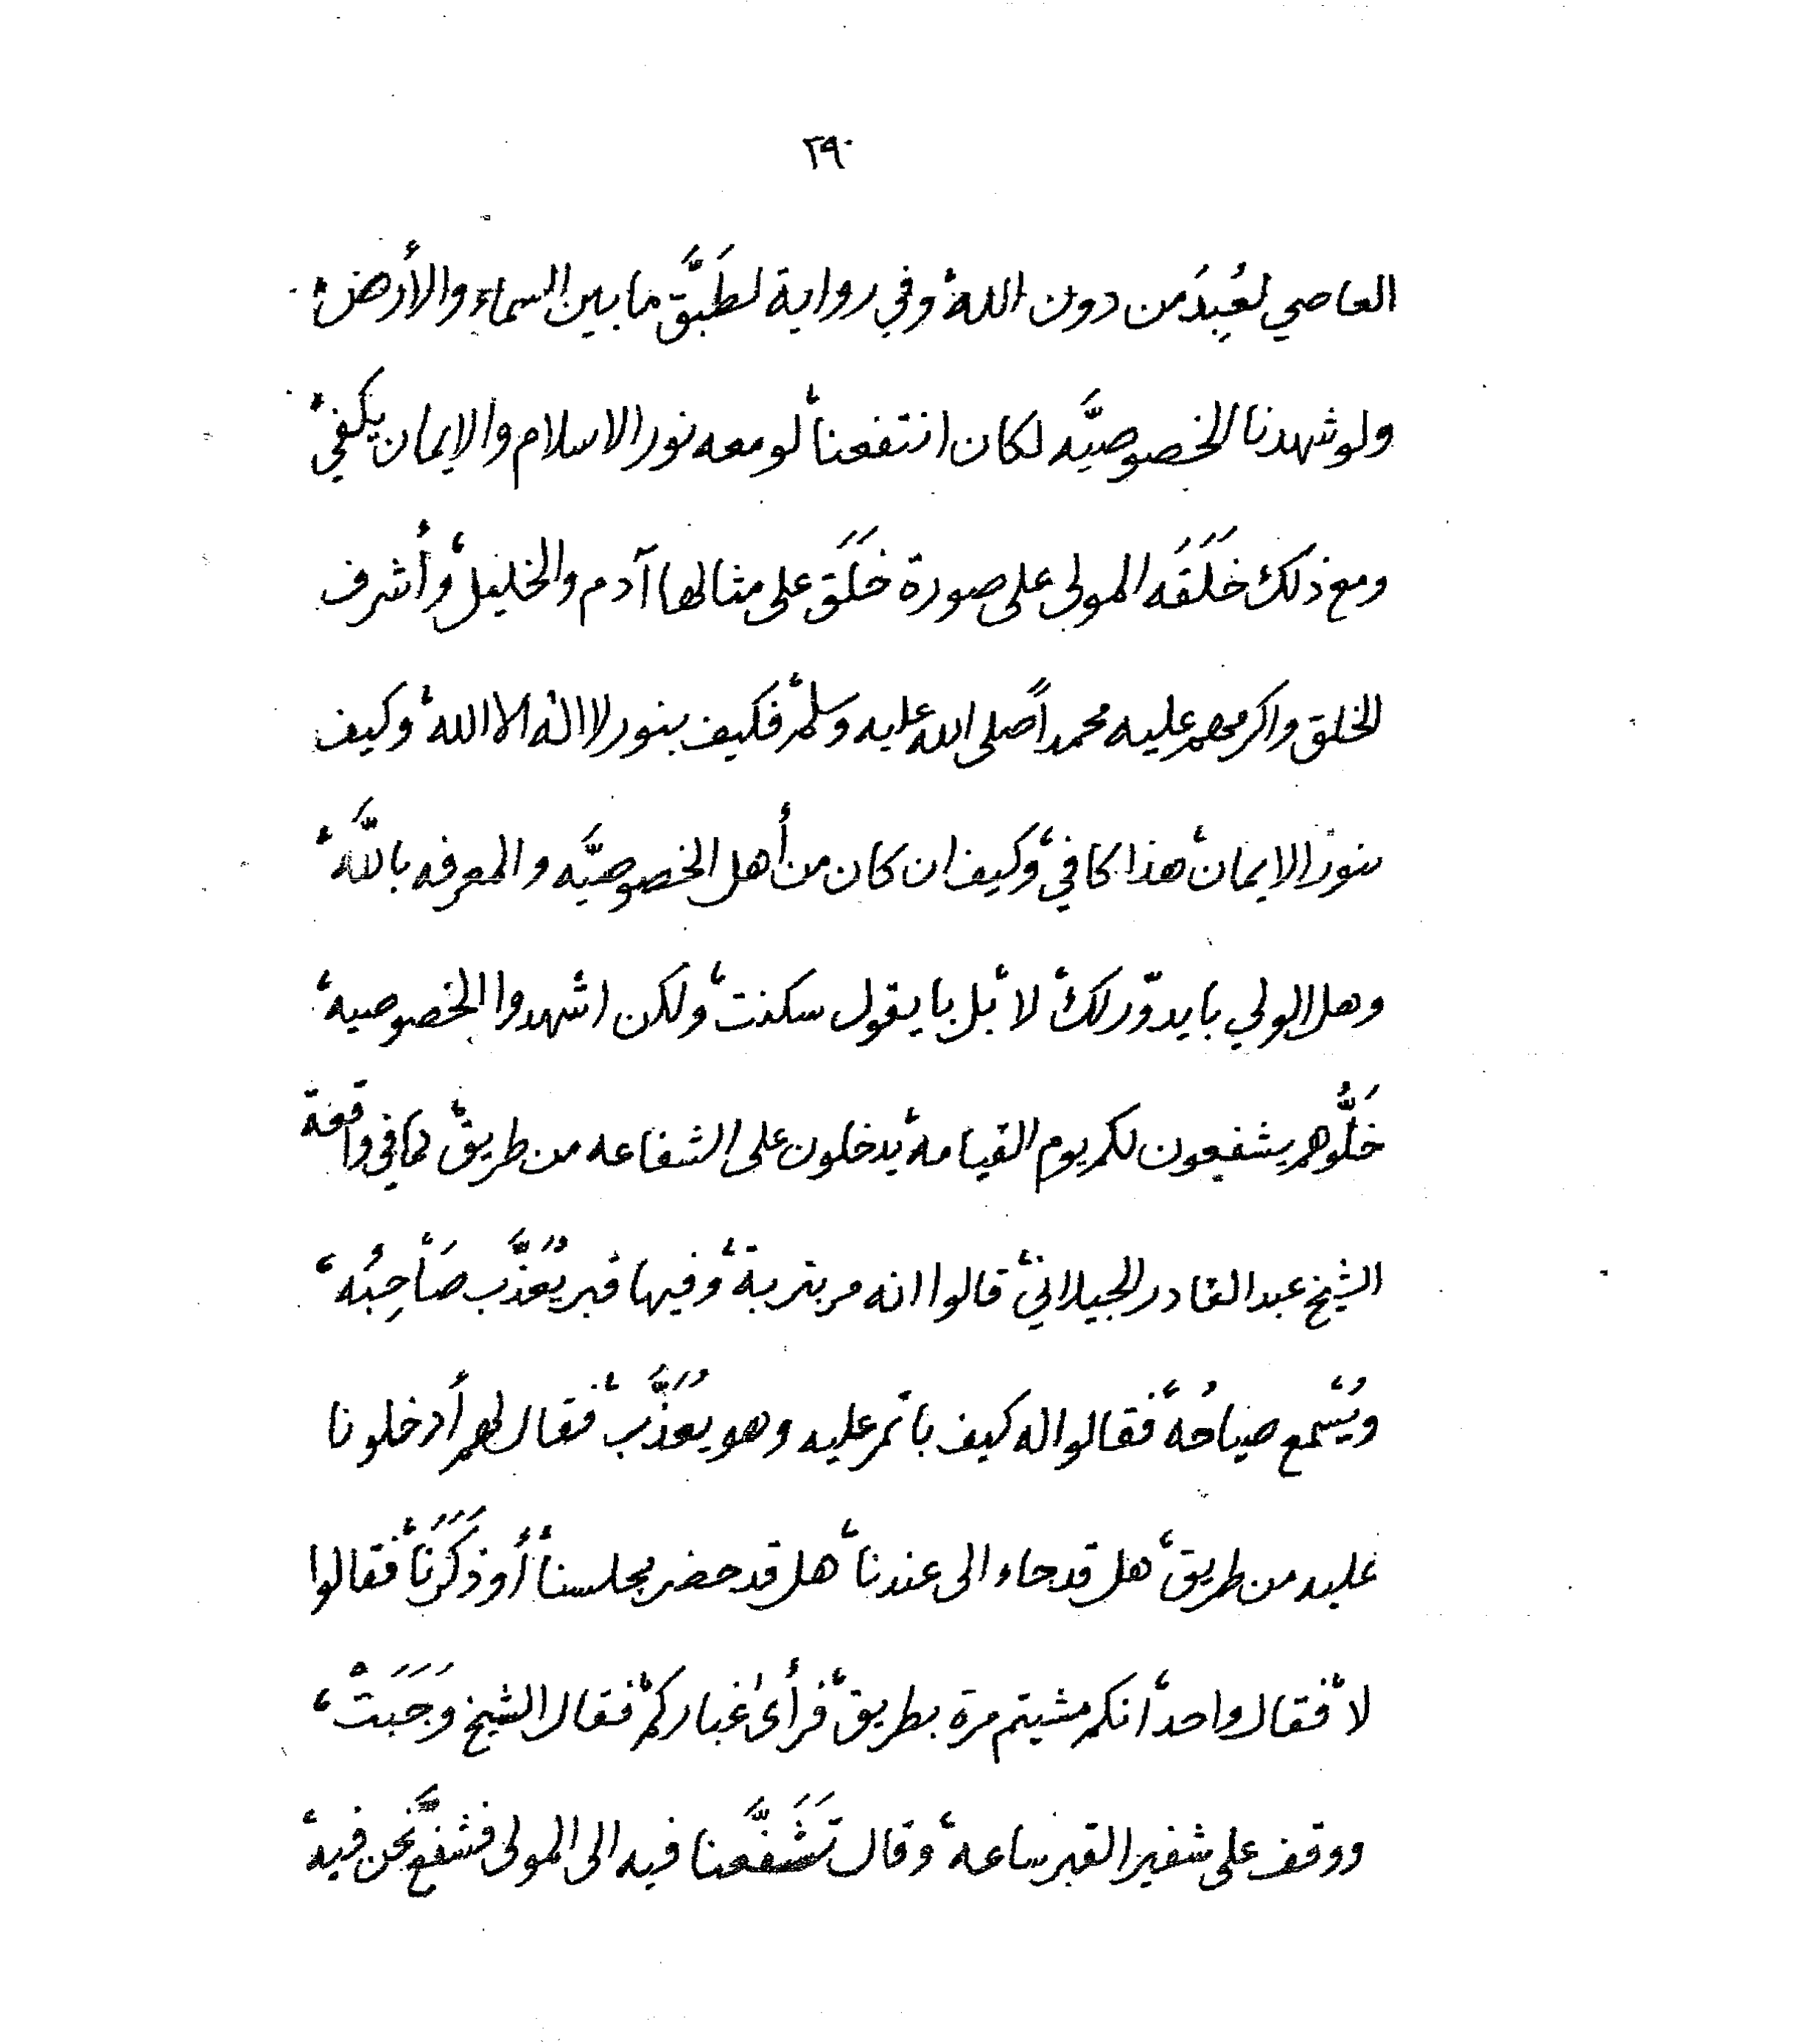 ٢٩٠
العاصي لعُبِدَ من دون الله، وفي رواية لطَبَّق ما بين السماء والأرض،
ولو شهدنا الخصوصيَّه لكان انتفعنا، لو معه نور الاسلام والايمان يكفي،
ومع ذلك خَلَقَه المولى على صورة خَلَقَ على مثالها آدم والخليل، وأشرف
الخلق واكرمهم عليه محمداً صلى الله عليه وسلم، فكيف بنور لا اله الا الله، وكيف
بنور الايمان، هذا كافي، وكيف ان كان من أهل الخصوصيَّه والمعرفه باللَّه،
وهل الولي بايدوّر لك، لا، بل بايقول سكنت، ولكن اشهدوا الخصوصيه،
خَلُّوهم يشفعون لكم يوم القيامه، يدخلون على الشفاعه من طريق، كما في واقعة
الشيخ عبد القادر الجيلاني، قالوا انه مر بتربة، وفيها قبر يُعَذَّب صَاحِبُه،
ويُسْمع صياحُه، فقالوا له كيف باتمر عليه وهو يُعَذَّب، فقال لهم أدخلونا
عليه من طريق، هل قد جاء الى عندنا، هل قد حضر مجلسنا، أو ذَكَرَنَا، فقالوا
لا، فقال واحد، انكم مشيتم مرة بطريق، فرأى غباركم، فقال الشيخ وَجَبَتْ،
ووقف على شفير القبر ساعه، وقال تَشَفَّعنا فيه الى المولى فشفَّع نحن فيه،